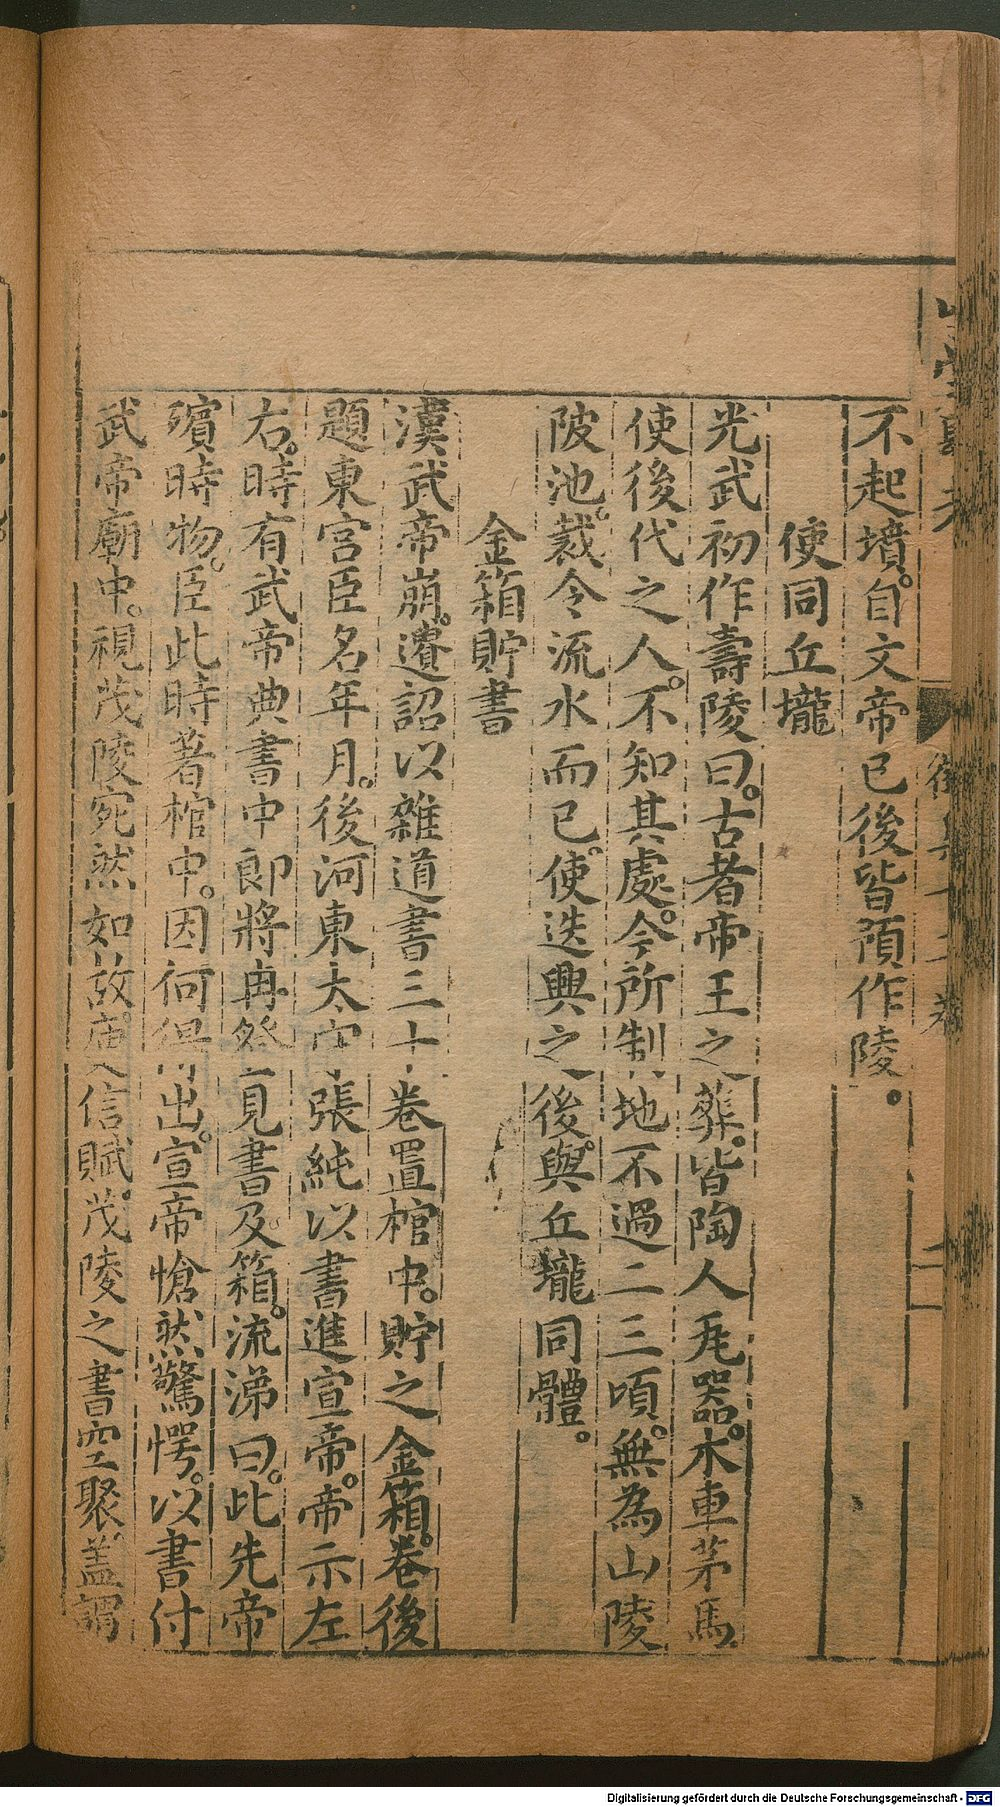 不起墳。自文帝已後皆預作陵。
使同丘壠
光武初作壽陵曰。古者帝王之葬。皆陶人瓦器。木車茅馬。
使後代之人。不知其處。今所制地不過二三頃。無為山陵
陂池。裁令流水而已。使迭興之後。與丘壠同體。
金箱貯書
漢武帝崩。遺詔以雜道書三十卷置棺中。貯之金箱。卷後
題東宮臣名年月。後河東太守張純以書進宣帝。帝示左
右。時有武帝典書中郎將冉登見書及箱。流涕曰。此先帝
殯時物。臣此時著棺中。因何得出。宣帝愴然驚愕。以書付
武帝廟中。視茂陵宛然如故。庾信賦。茂陵之書空聚。盖謂
Digitalisierung gefördert durch die Deutsche Forschungsgemeinschaft - DFG